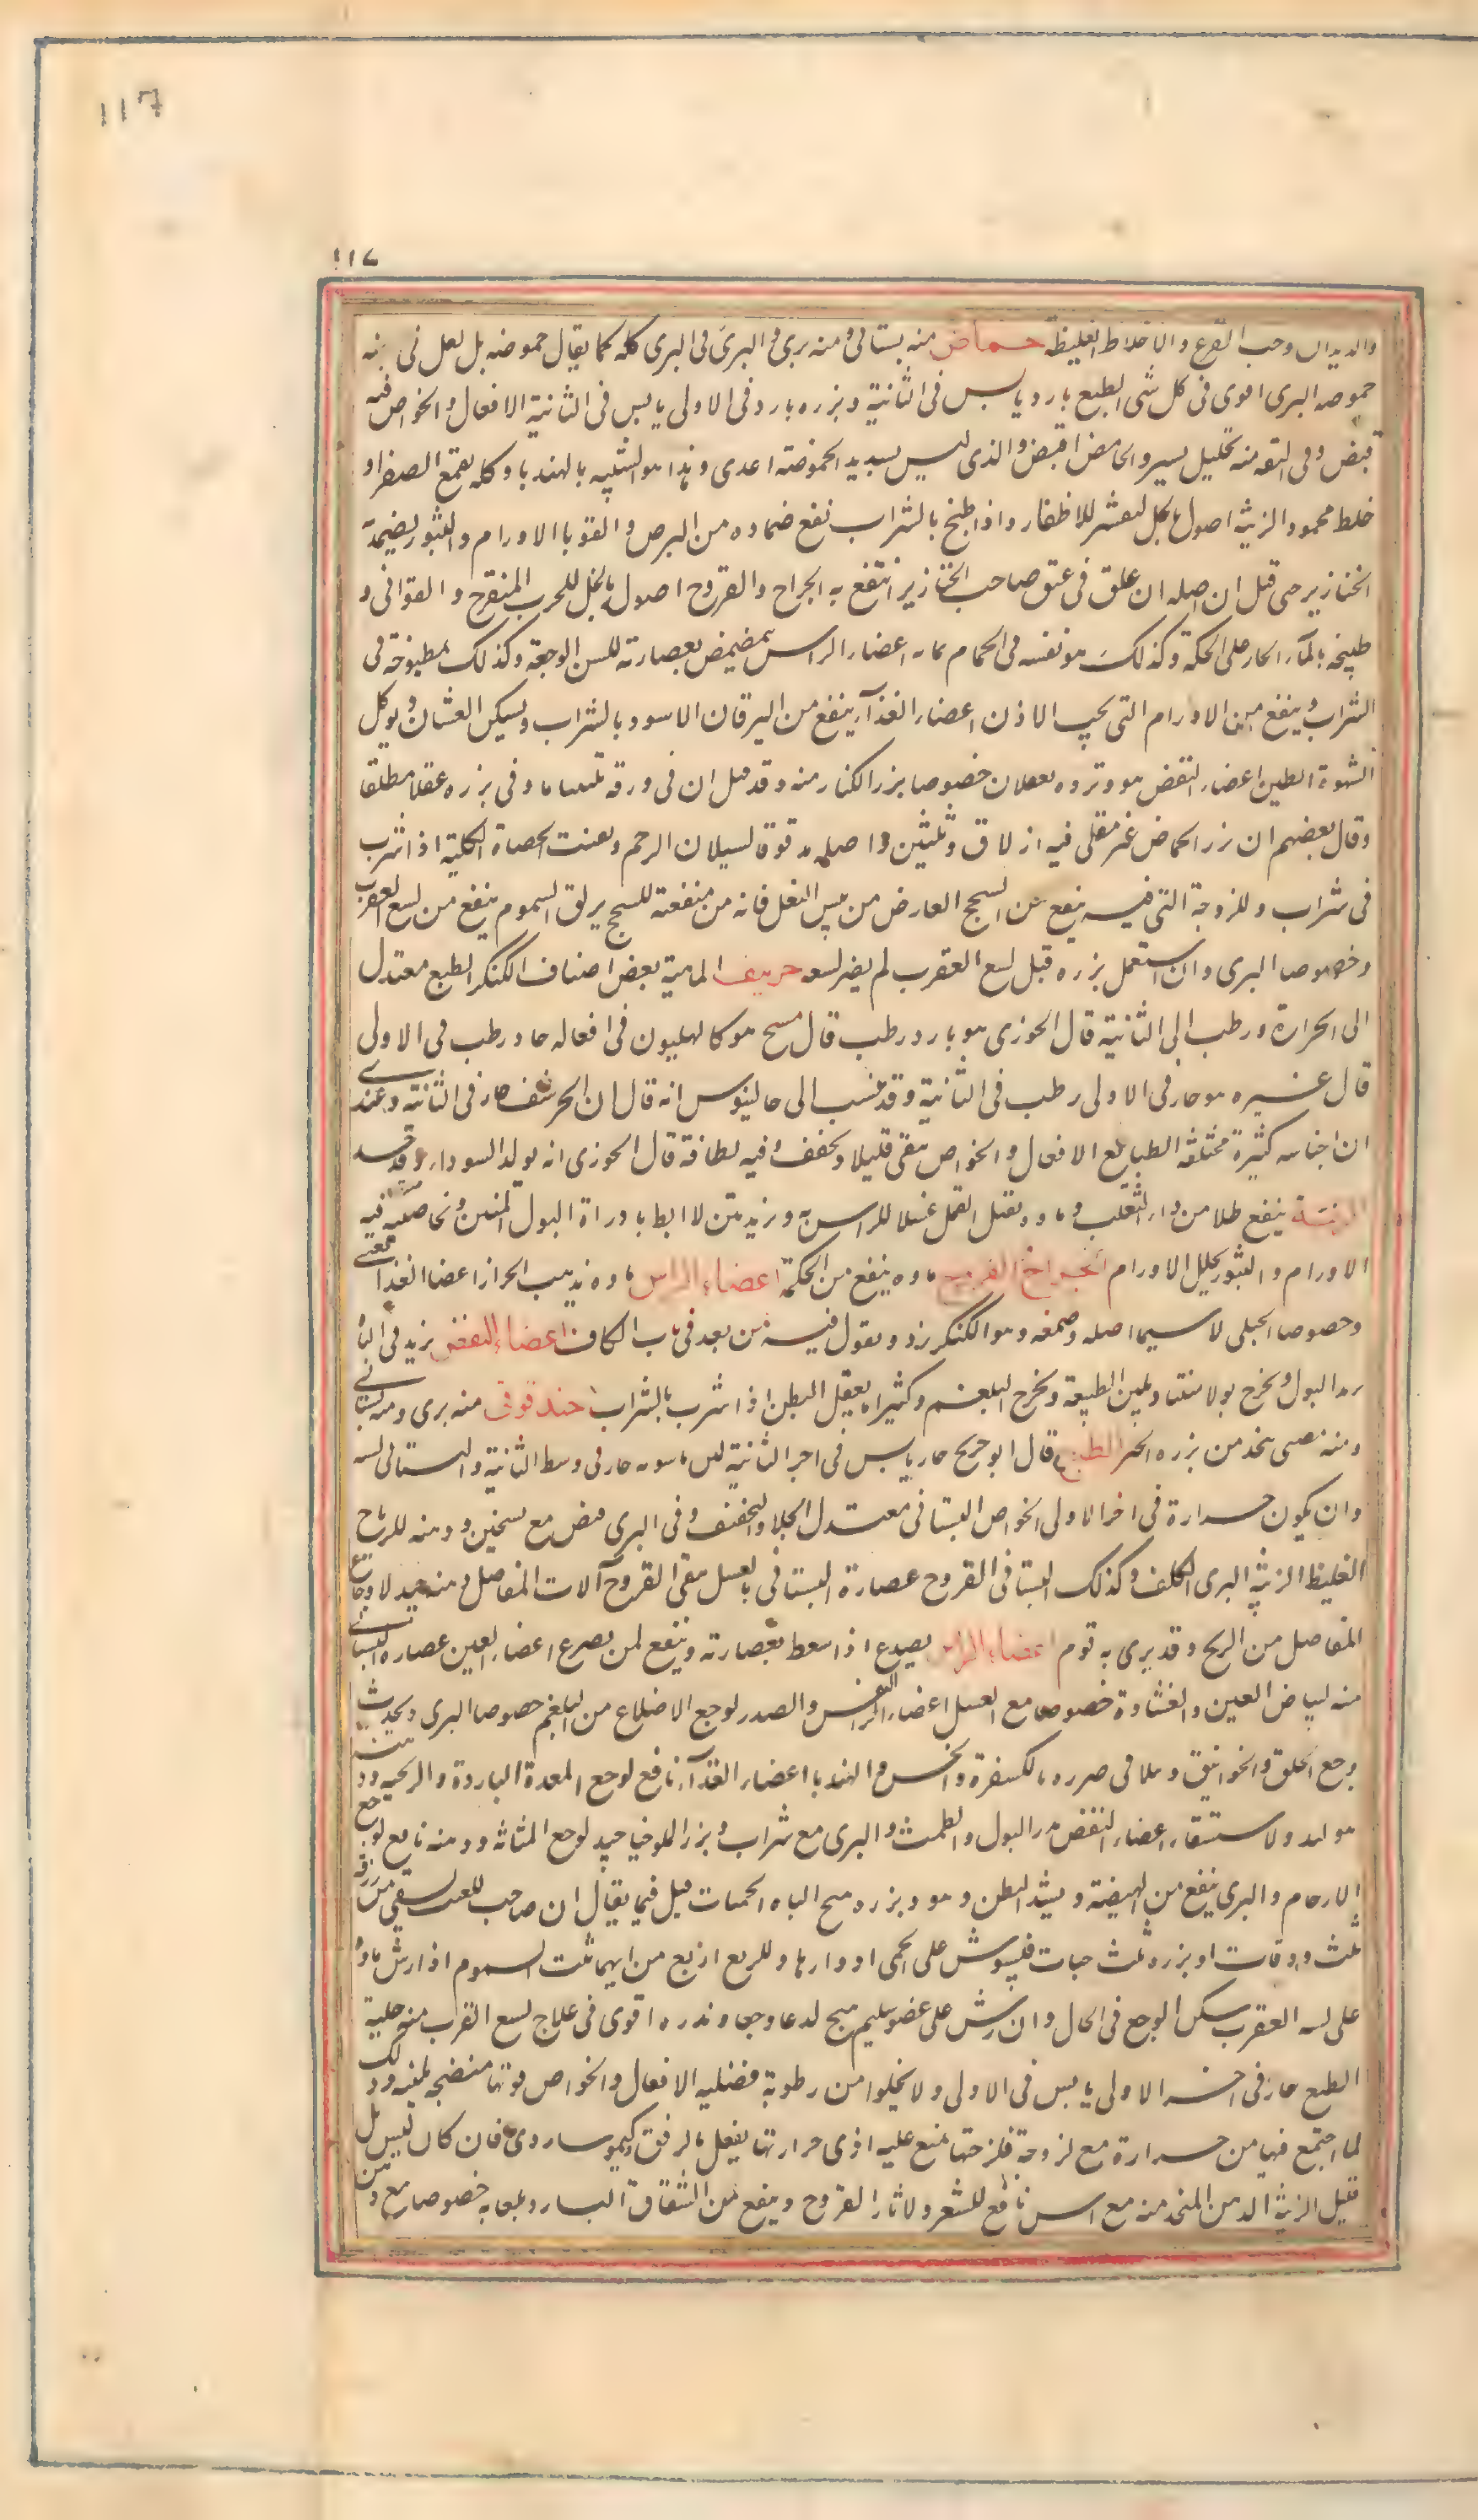 117
١١٧
والديدان وحب القرع والاخلاط الغليظة حماض منه بستانى ومنه برى وفى البرى كله كما يقال حموضه بل لعل فى
حموضه البرى اقوى فى كل شى الطبع بارد يابس فى الثانية وبزره بارد فى الاولى يابس فى الثانية الافعال والخواص فيه
قبض وفى التفه منه تحليل يسير والحامض اقبض والذى ليس بشديد الحموضة اغدى وهذا هو الشبيه بالهندبا وكله يقمع الصفرا و
خلط محمود الزينة اصول بالخل لتقشر للاظفار واذا طبخ بالشراب نفع ضماده من البرص والقوبا الاورام والبثور يضمد به
الخنازير حتى قيل ان اصله ان علق فى عنق صاحب الخنازير انتفع به الجراح والقروح اصول بالخل للجرب المتقرح والقوافى و
طبيخه بالماء الحار على الحكة وكذلك هو نفسه فى الحمام اعضاء الراس يتمضمض بعصارته للسن الوجعة وكذلك مطبوخه فى
الشراب وينفع من الاورام التى تحت الاذن اعضاء الغذاء ينفع من اليرقان الاسود بالشراب ويسكن الغثيان ويوكل
لشهوة الطين اعضاء النفض هو وبزره يعقلان خصوصا بزر الكبار منه وقد قيل ان فى ورقه تليينا ما وفى بزره عقلا مطلقا
وقال بعضهم ان بزر الحماض غير مقلى فيه ازلاق وتليين واصله مدقوقا لسيلان الرحم وتفتت الحصاة الكلية اذا شرب
فى شراب وللزوجة التى فيه ينفع من السحج العارض من يبس الثفل فانه من منفعته للسحج يزلق السموم ينفع من لسع العقرب
وخصوصا البرى وان استعمل بزره قبل لسع العقرب لم يضر لسعه حريف الماهية بعض اصناف الكنكر الطبع معتدل
الى الحرارة ورطب الى الثانية قال الخوزى هو بارد رطب قال مسيح هو كالهليون فى افعاله حار ورطب فى الاولى
قال غيره هو حار فى الاولى رطب فى الثانية وقد نسب الى جالينوس انه قال ان الحرشف حار فى الثانية وعندى
ان اجناسه كثيرة مختلفة الطبايع الافعال والخواص تنقى قليلا وتجفف وفيه لطافة قال الخوزى انه يولد السودا
الزينة ينفع طلا من داء الثعلب وماوه يقتل القمل غسلا للراس به ويزيل نتن الابط بادرار البول المنتن وبخاصية فيه
الاورام والبثور يحلل الاورام الجراح القروح ماوه ينفع من الحكة اعضاء الراس ماوه يذهب الحزاز اعضا الغذا
وخصوصا الجبلى لا سيما اصله وصمغه وهو الكنكرزد ونقول فيه من بعد فى باب الكاف اعضاء النفض يزيد فى الباه
يدر البول ويخرج بولا منتنا ويلين الطبيعة ويخرج البلغم وكثيرا ما يعقل البطن اذا شرب بالشراب حندقوقى منه برى ومنه بستانى
ومنه مصرى يتخذ من بزره الخبز الطبع قال ابو جريح حار يابس فى اخر الثانية ابن ماسويه حار فى وسط الثانية والبستانى
وان يكون حرارة فى اخر الاولى الخواص البستانى معتدل الجلا والتجفيف وفى البرى قبض مع تسخين ودهنه للرياح
الغليظة الزينة البرى للكلف وكذلك البستانى القروح عصارة البستانى بالعسل ينقى القروح آلات المفاصل دهنه جيد لاوجاع
المفاصل من الريح وقد يبرى به قوم اعضاء الراس يصدع اذا سعط بعصارته وينفع لمن يصرع اعضاء العين عصاره البستانى
منه لبياض العين والغشاوة خصوصا مع العسل اعضاء النفس والصدر لوجع الاضلاع من البلغم خصوصا البرى ويحدث
وجع الحلق والخوانيق ويتلافى ضرره بالكسفرة والخس والهندبا اعضاء الغذاء نافع لوجع المعدة الباردة والريحية
ولاستسقاء اعضاء النفض مدر البول والطمث والبرى مع شراب وبزر الملوخيا جيد لوجع المثانه ودهنه نافع لوجع
الارحام والبرى ينفع من الهيضة ويشد البطن وهو وبزره مهيج الباه الحميات قيل فيما يقال ان صاحب الغب يسقى من ورقه
ثلث ورقات او بزره ثلث حبات فيشوش على الحمى ادوارها وللربع اربع من ايهما شئت السموم اذا رش ماوه
على لسع العقرب سكن الوجع فى الحال وان رش على عضو سليم هيج لدعا ووجعا وبذره اقوى فى علاج لسع العقرب منه حلبة
الطبع حار فى اخر الاولى يابس فى الاولى ولا يخلوا من رطوبة فضليه الافعال والخواص قوتها منضجه ملينه وذلك
لما اجتمع فيها من حرارة مع لزوجة فلزجتها تمنع عليه اذى حرارتها يفعل بالرفق وكيموسها ردى فان كان ليس بل
قليل الزينة الدهن المتخذ منه مع اس نافع للشعر ولاثار القروح وينفع من الشقاق البارد ولعابه خصوصا مع دهن